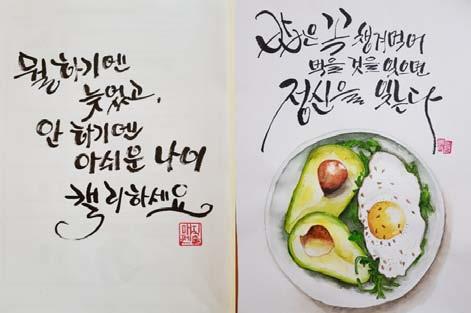 뭘 하기엔
늦었고,
안 하기엔
아쉬운 나이
캘리하세요
밥은 꼭 챙겨먹어
먹을 것을 잊으면
정신을 잊는다